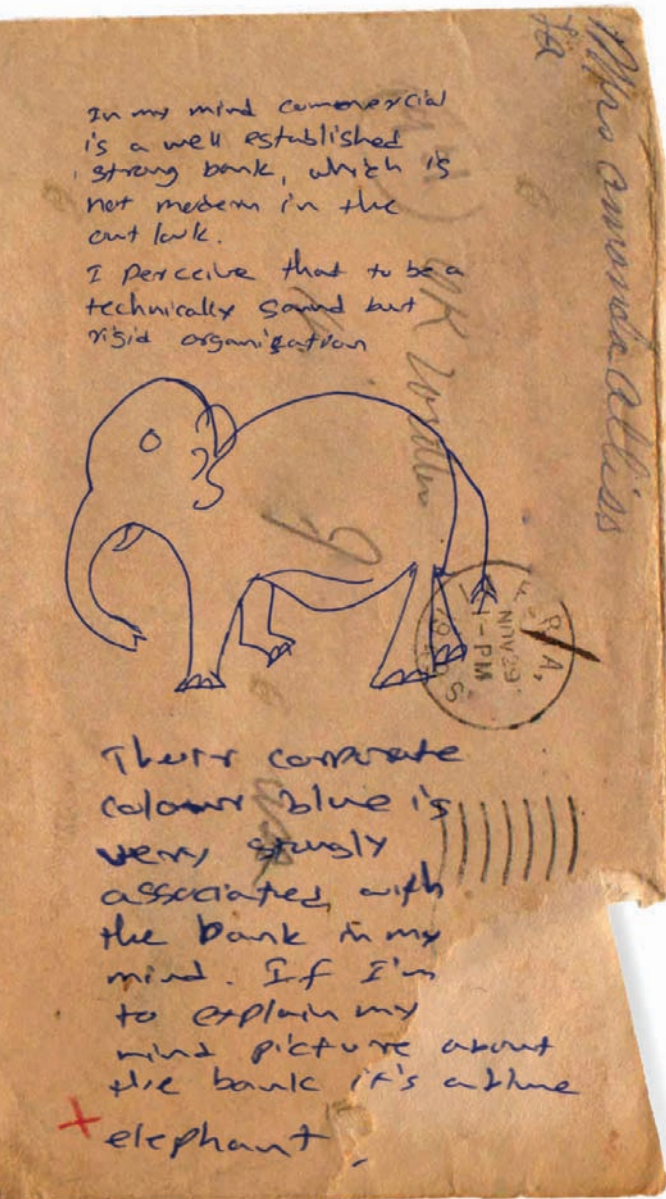 In my mind commercial
is a well established
strong bank, which is
not modern in the
out look.
I perceive that to be a
technically sound but
rigid organization
Their corporate
colour blue is
very strongly
associated with
the bank in my
mind. If I'm
to explain my
mind picture about
the bank it's a blue
elephant.
Mrs
NOV 29
1-PM